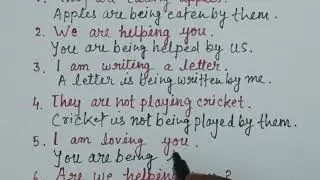 1. They are eating apples.
Apples are being eaten by them.
2. We are helping you.
You are being helped by us.
3. I am writing a letter.
A letter is being written by me.
4. They are not playing cricket.
Cricket us not being played by them.
5. I am loving you.
You are being
6. Are we helping ?